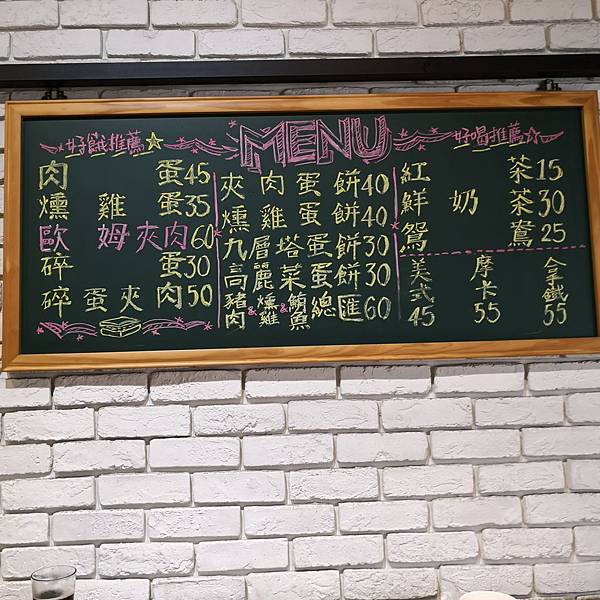 好餓推薦
MENU
好喝推薦
肉蛋45
燻雞蛋35
歐姆夾肉60
碎蛋30
碎蛋夾肉50
夾肉蛋餅40
燻雞蛋餅40
九層塔蛋餅30
高麗菜蛋餅30
豬肉&燻雞&鮪魚總匯60
紅茶15
鮮奶茶30
鴛鴦25
美式45
摩卡55
拿鐵55